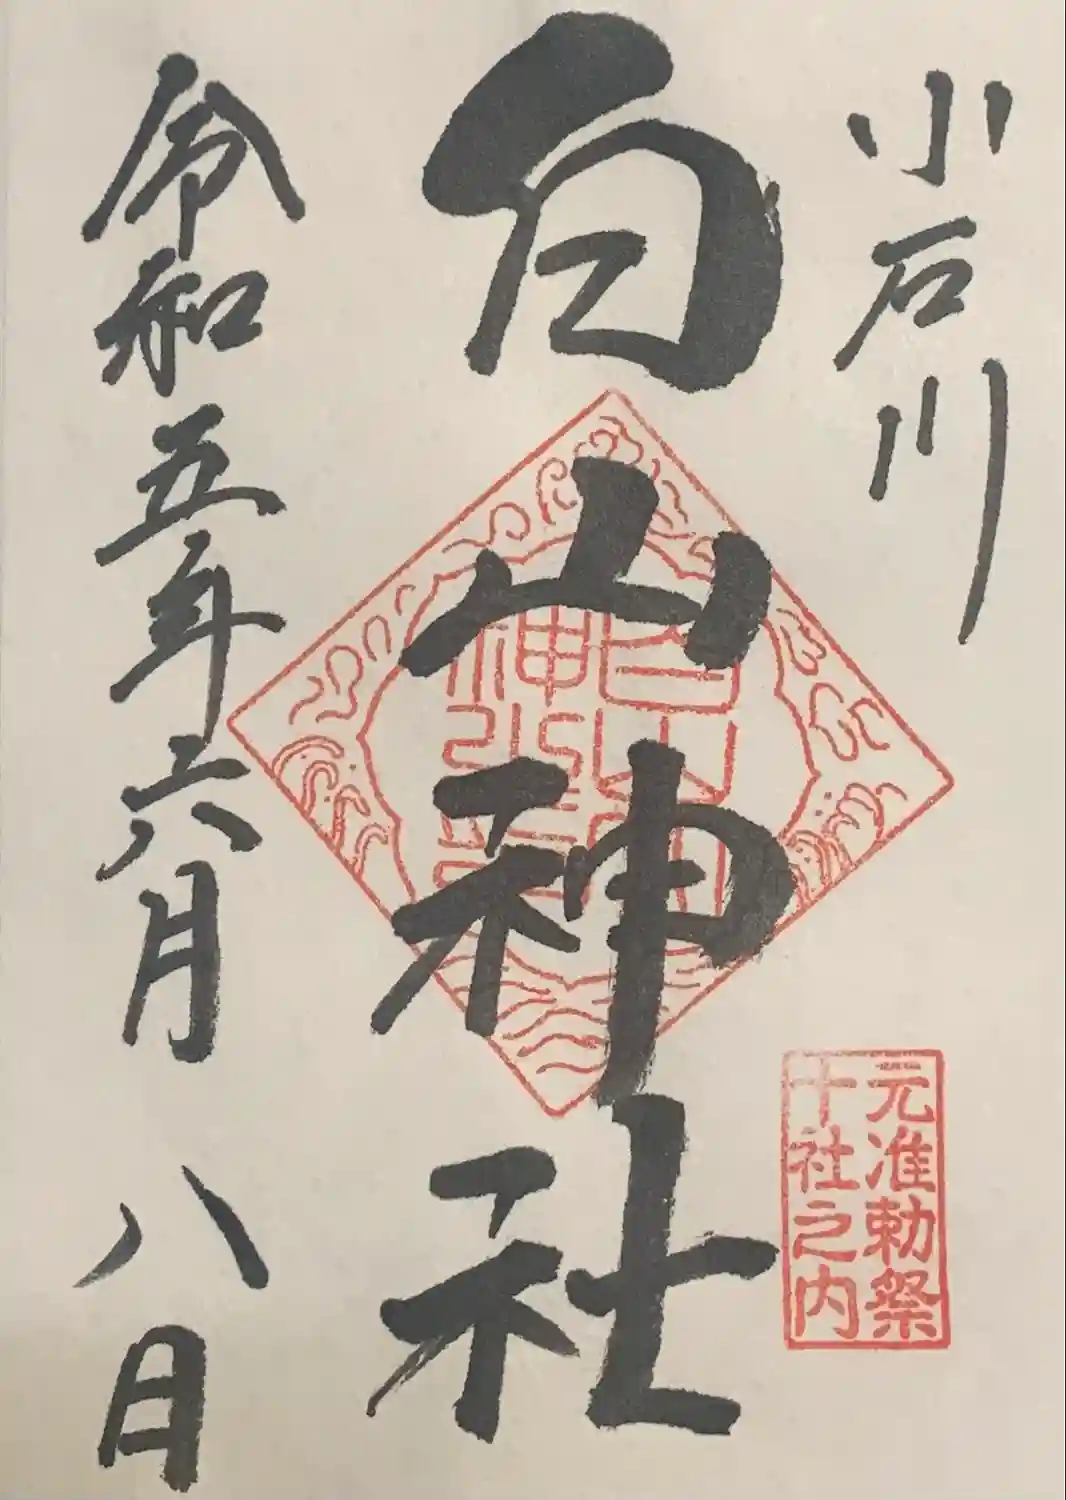 小石川
白山神社
元准勅祭
十社之内
令和五年六月八日